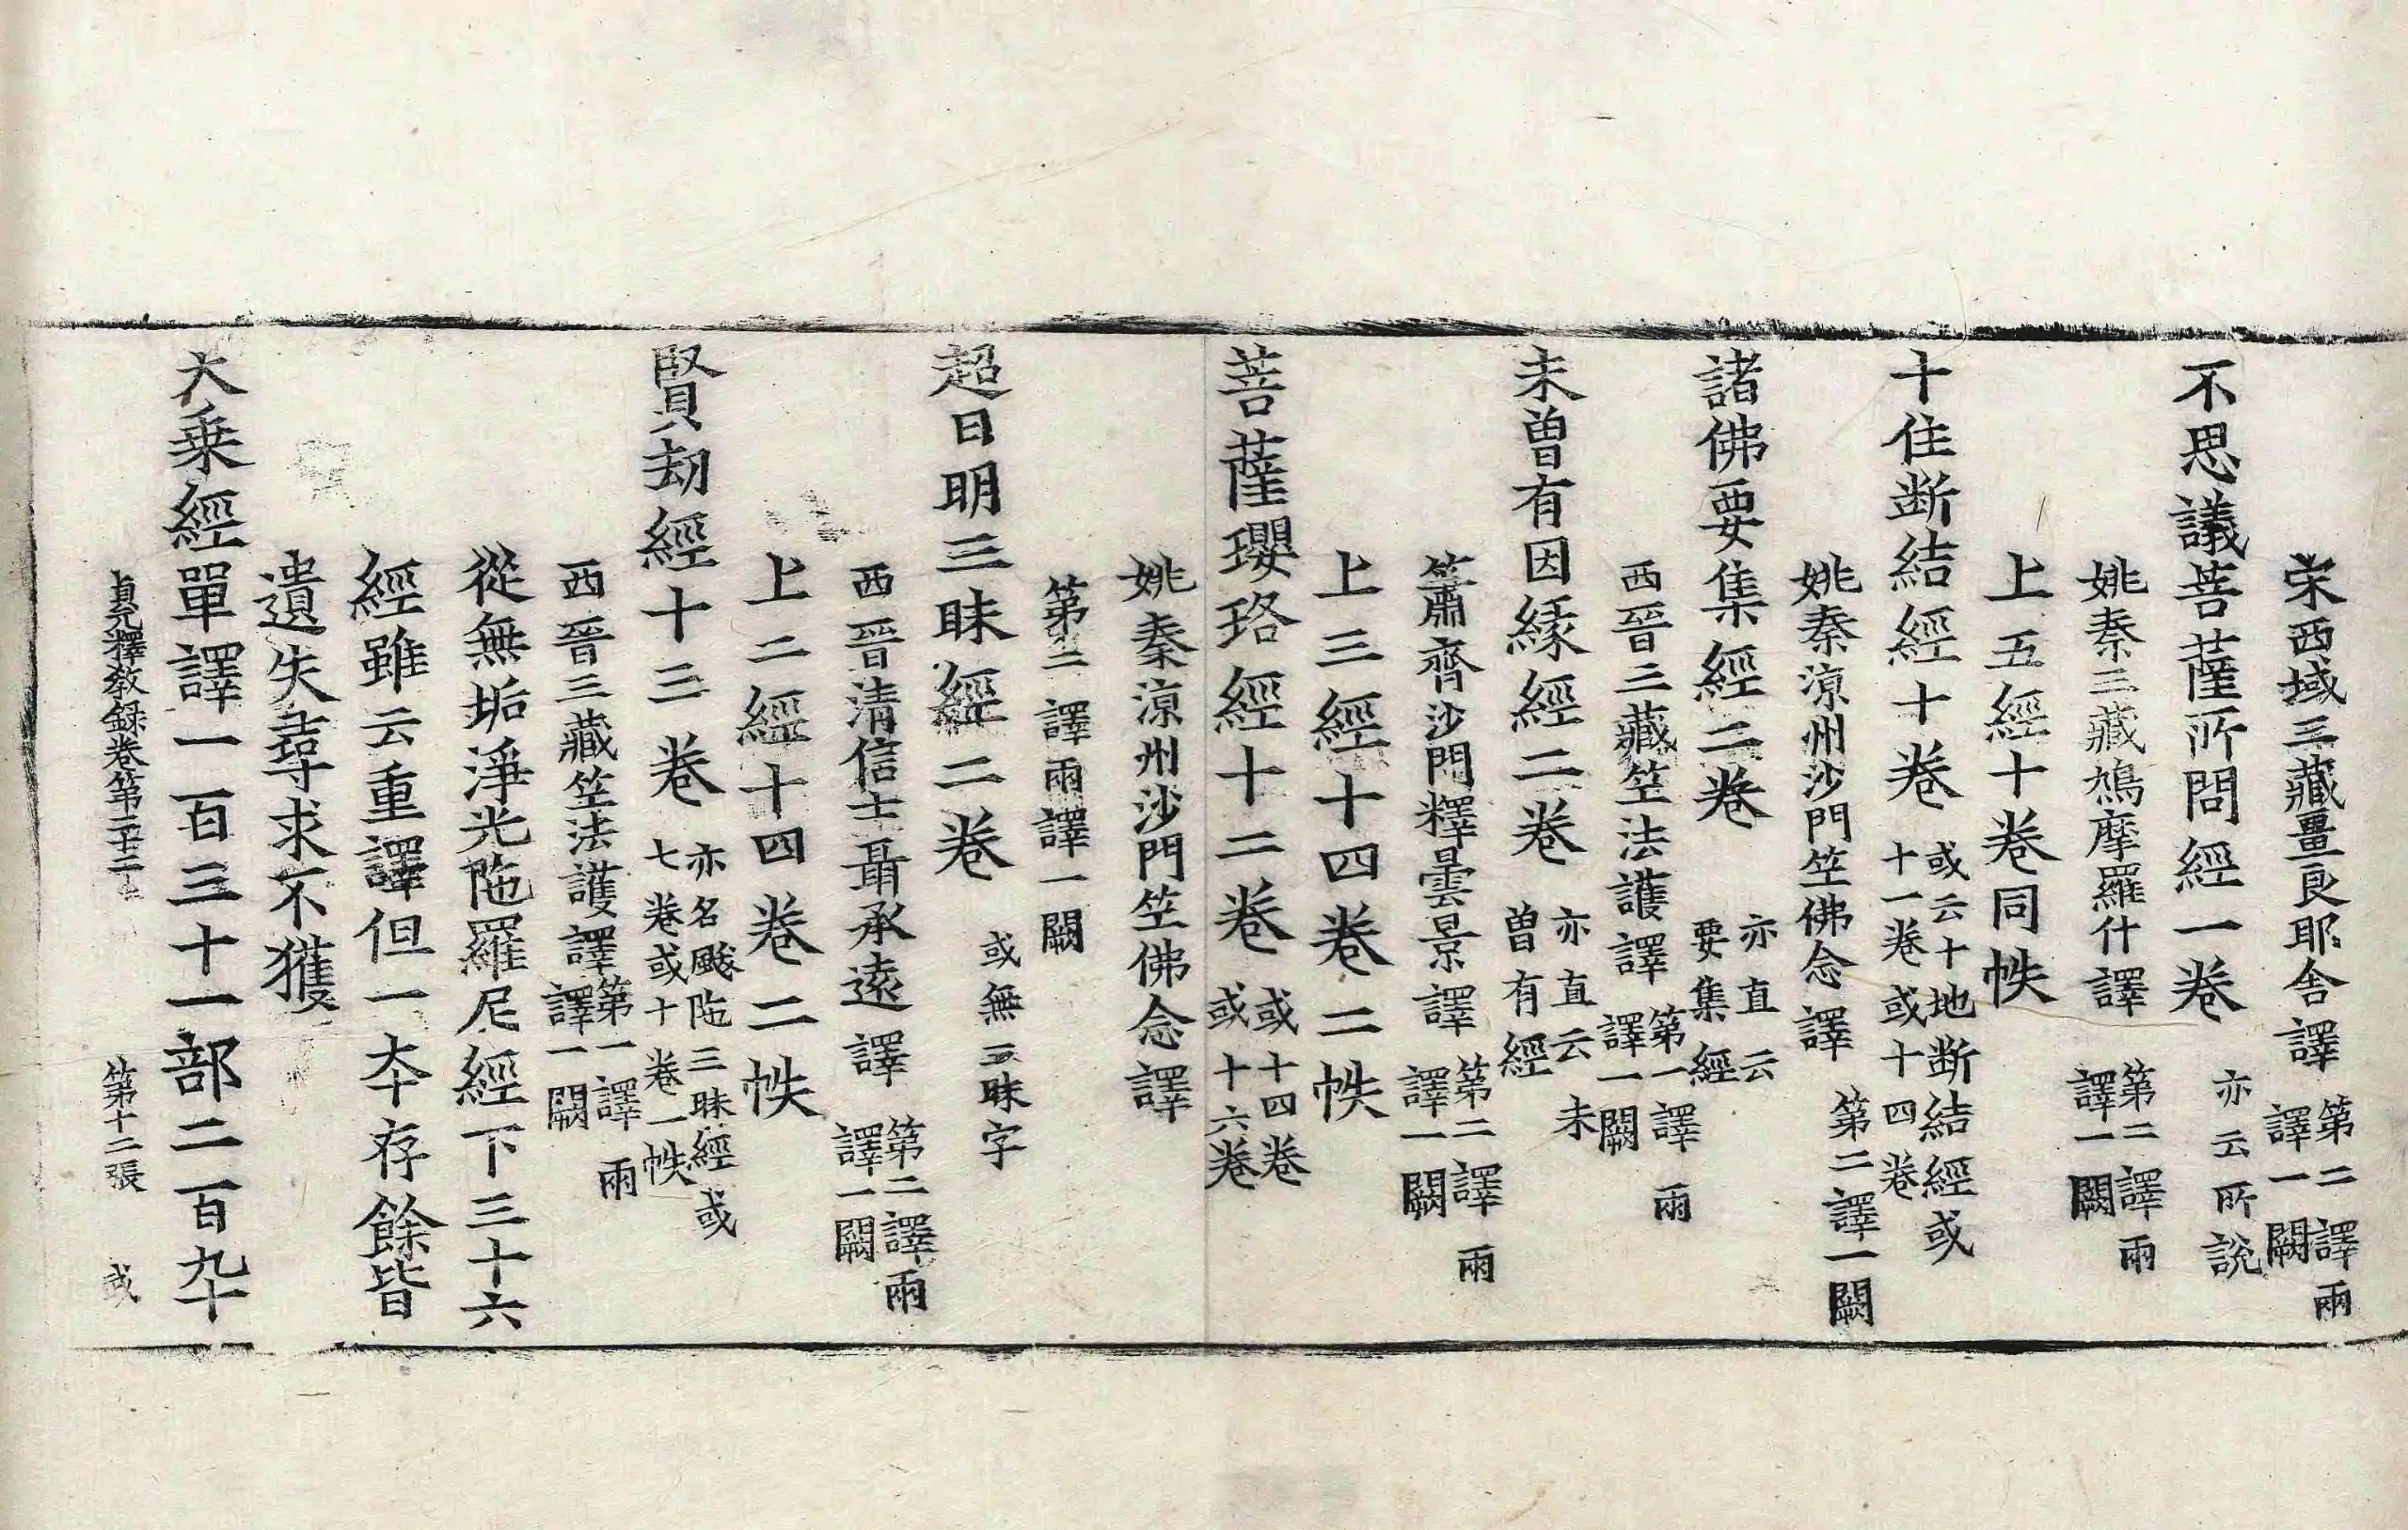 宋西域三藏畺良耶舍譯 第二譯兩譯一闕
不思議菩薩所問經一卷 亦云所說
姚秦三藏鳩摩羅什譯 第二譯兩譯一闕
上五經十卷同帙
十住断結經十卷 或云十地断結經或十一卷或十四卷
姚秦涼州沙門竺佛念譯 第二譯一闕
諸佛要集經二卷 亦直云要集經
西晉三藏竺法護譯 第一譯兩譯一闕
未曾有因緣經二卷 亦直云未曾有經
簫齊沙門釋曇景譯 第二譯兩譯一闕
上三經十四卷二帙
菩薩瓔珞經十二卷 或十四卷或十六卷
姚秦涼州沙門竺佛念譯
第二譯兩譯一闕
超日明三昧經二卷 或無三昧字
西晉清信士聶承遠譯 第二譯兩譯一闕
上二經十四卷二帙
賢劫經十三卷 亦名颰陁三昧經或七卷或十卷一帙
西晉三藏竺法護譯 第一譯兩譯一闕
從無垢淨光陁羅尼經下三十六
經雖云重譯但一本存餘皆
遺失尋求不獲
大乗經單譯一百三十一部二百九十
貞元釋教録卷第二十二 第十二張 或